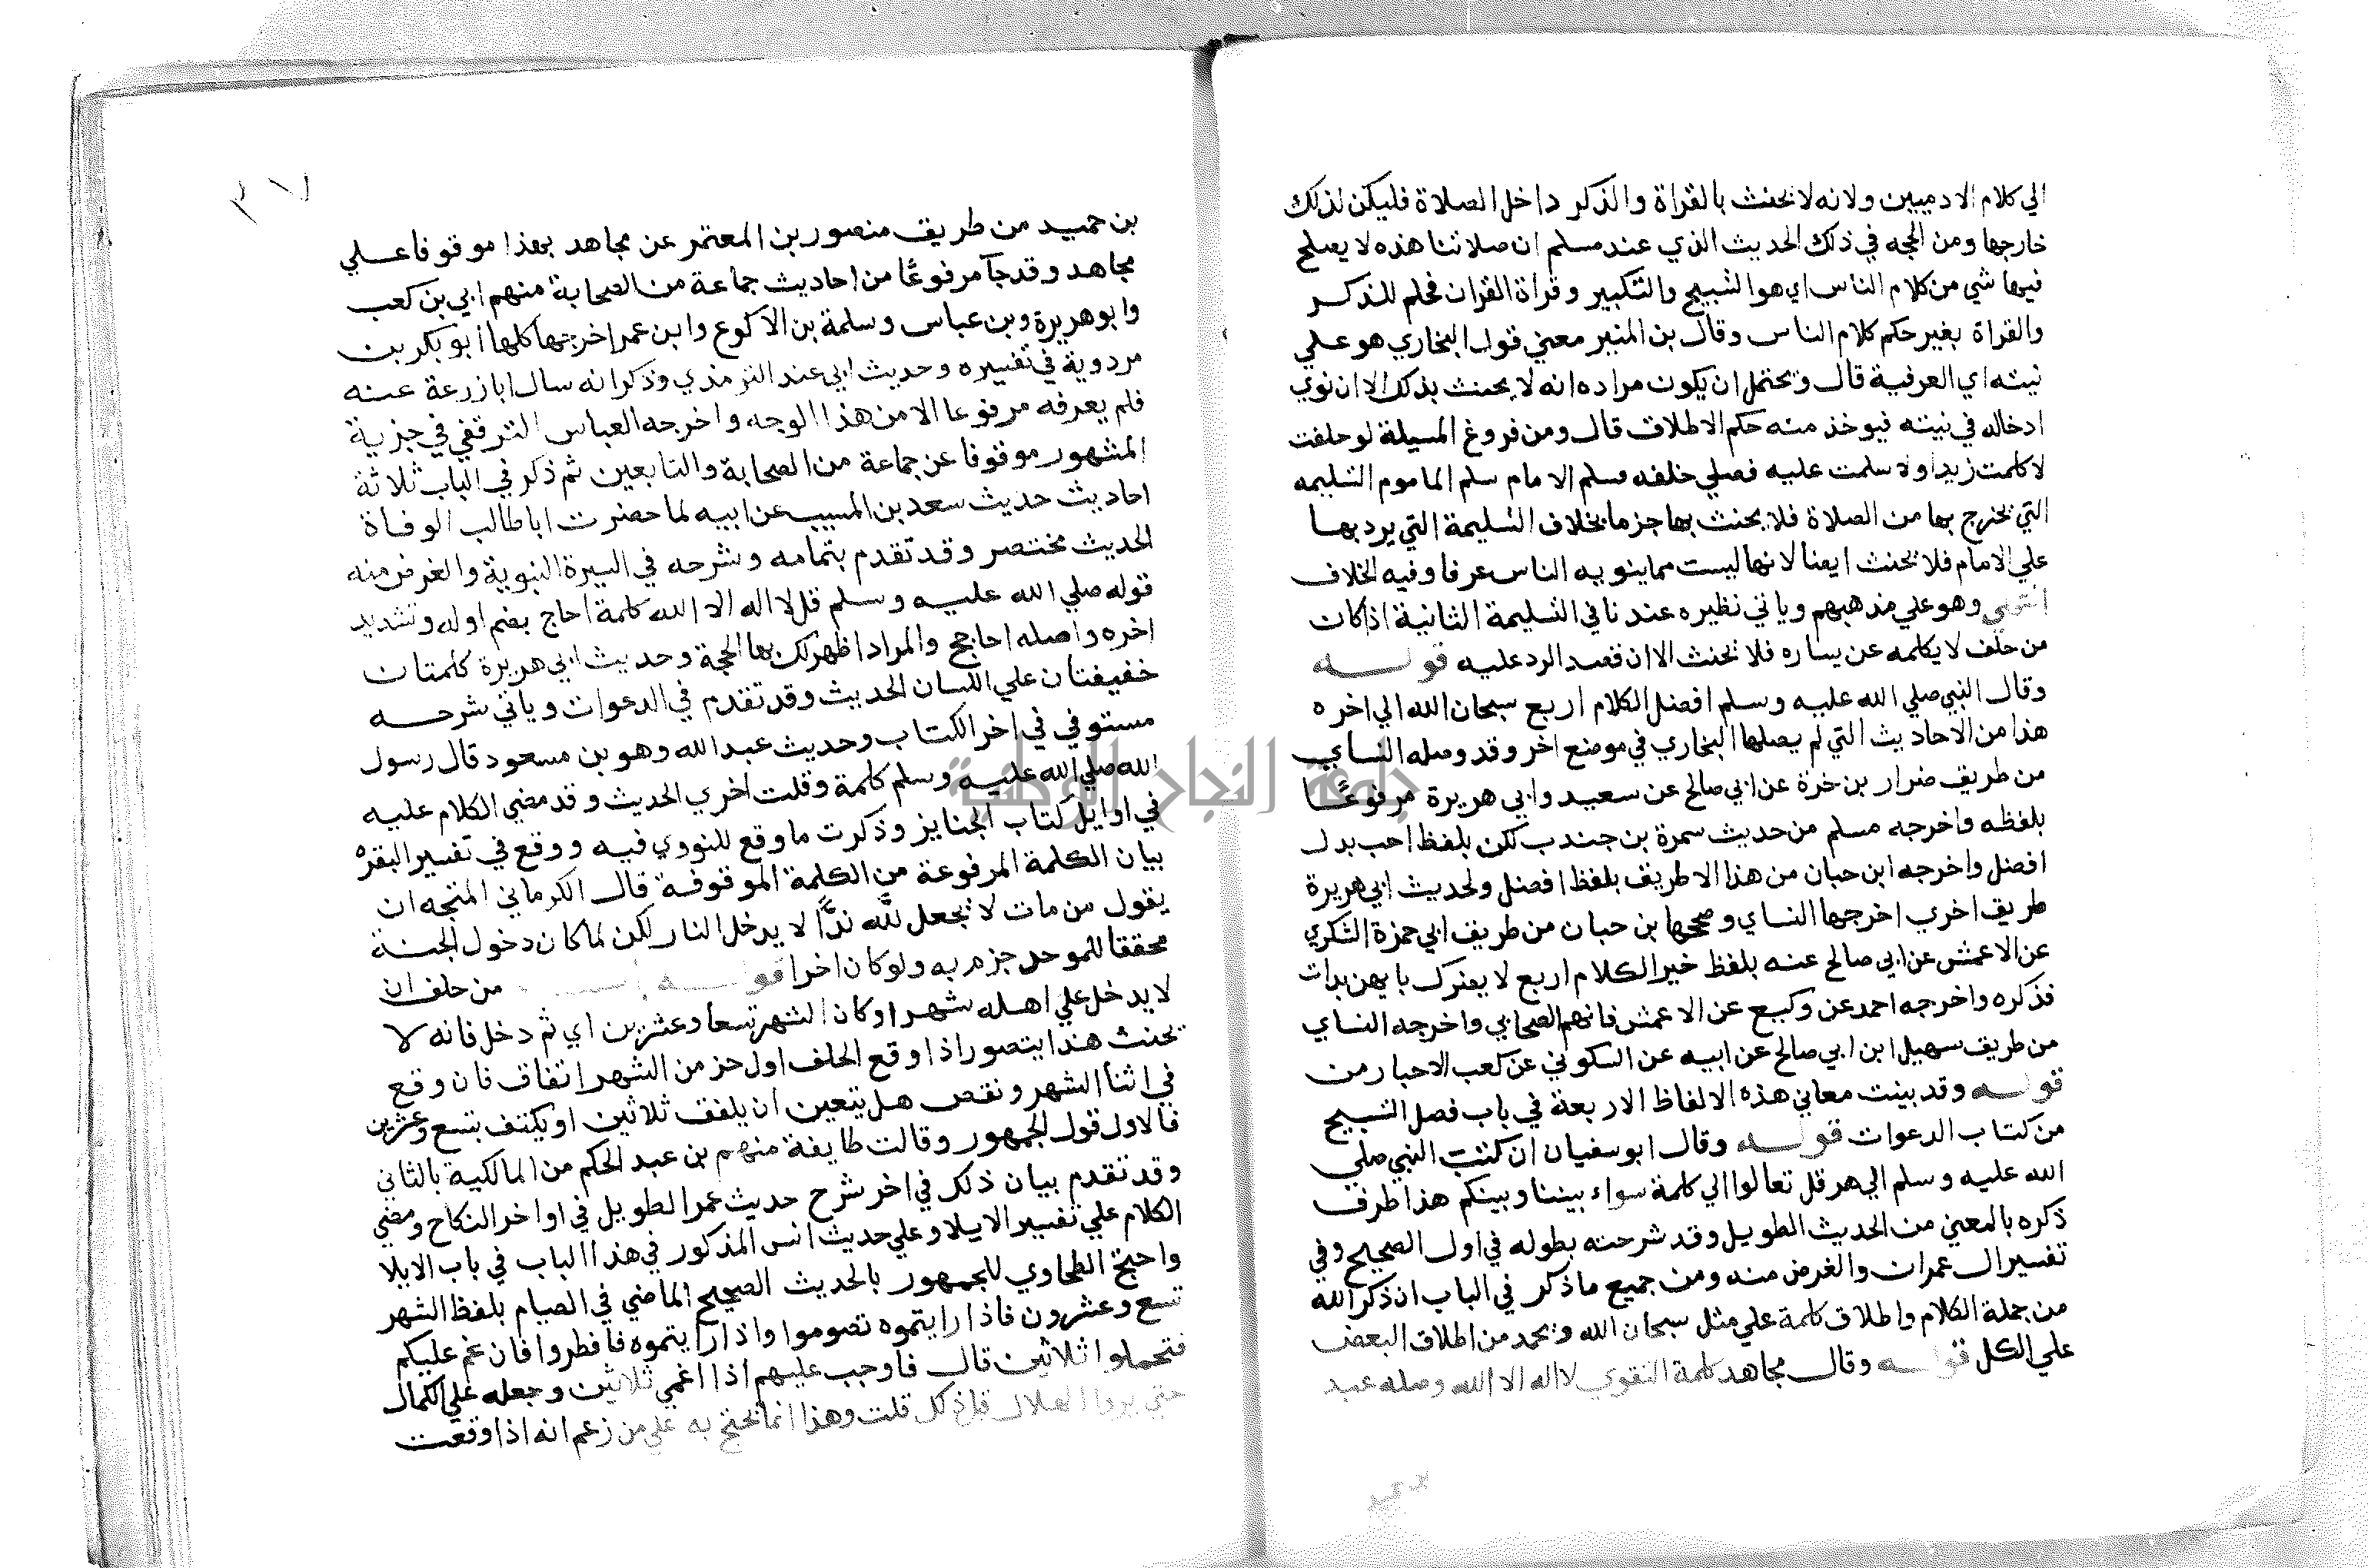 الي كلام الادميين ولانه لا يحنث بالقراة والذكر داخل الصلاة فليكن لذلك
خارجها ومن الحجه في ذلك الحديث الذي عند مسلم ان صلاتنا هذه لا يصلح
فيها شي من كلام الناس اي هو التسبيح والتكبير وقراة القران فحلم للذكر
والقراة بغير حكم كلام الناس وقال بن المنير معني قول البخاري هو علي
نيته اي العرفية قال ويحتمل ان يكون مراده انه لا يحنث بذلك الا ان نوي
ادخاله في نيته فيوخذ منه حكم الاطلاق قال ومن فروع المسيلة لو حلفت
لا كلمت زيدا ولا سلمت عليه فصلي خلفه فسلم الامام سلم الماموم التسليمه
التي يخرج بها من الصلاة فلا يحنث بها جزما بخلاف التسليمة التي يرد بها
علي الامام فلا يحنث ايضا لانها ليست مما ينويه الناس عرفا وفيه الخلاف
انتهي وهو علي مذهبهم وياتي نظيره عندنا في التسليمة الثانية اذا كان
من حلف لا يكلمه عن يساره فلا يحنث الا ان قصد الرد عليه قولـــه
وقال النبي صلي الله عليه وسلم افضل الكلام اربع سبحان الله الي اخره
هذا من الاحاديث التي لم يصلها البخاري في موضع اخر وقد وصله النساي
من طريق ضرار بن خرة عن ابي صالح عن سعيد وابي هريرة مرفوعًا
بلفظه واخرجه مسلم من حديث سمرة بن جندب لكن بلفظ احب بدل
افضل واخرجه ابن حبان من هذا الاطريق بلفظ افضل ولحديث ابي هريرة
طريق اخري اخرجها النساي وصححها بن حبان من طريق ابي حمزة الشكري
عن الاعمش عن ابي صالح عنه بلفظ خير الكلام اربع لا يضرك بايهن بدات
فذكره واخرجه احمد عن وكيع عن الاعمش فانهم الصحابي واخرجه النساي
من طريق سهيل ابن ابي صالح عن ابيه عن السكوني عن كعب الاحبار من
قولـــه وقد بينت معاني هذه الالفاظ الاربعة في باب فصل التسبيح
من كتاب الدعوات قولـــه وقال ابو سفيان ان كتب النبي صلي
الله عليه وسلم الي هرقل تعالوا الي كلمة سواء بيننا وبينكم هذا طرف
ذكره بالمعني من الحديث الطويل وقد شرحته بطوله في اول الصحيح وفي
تفسير ال عمران والغرض منه ومن جميع ما ذكر في الباب ان ذكر الله
من جملة الكلام واطلاق كلمة علي مثل سبحان الله وبحمد من اطلاق البعض
علي الكل قولـــه وقال مجاهد كلمة التقوي لا اله الا الله وصله عبد
بن حميد
بن حميد من طريق منصور بن المعتمر عن مجاهد بهذا موقوفا علي
مجاهد وقد جآ مرفوعًا من احاديث جماعة من الصحابة منهم ابي بن كعب
وابو هريرة وبن عباس وسلمة بن الاكوع وابن عمر اخرجها كلها ابو بكر بن
مردوية في تفسيره وحديث ابي عند الترمذي وذكر انه سال ابا زرعة عنه
فلم يعرفه مرفوعا الا من هذا الوجه واخرجه العباس الترقفي في جزية
المشهور موقوفا عن جماعة من الصحابة والتابعين ثم ذكر في الباب ثلاثة
احاديث حديث سعد بن المسيب عن ابيه لما حضرت ابا طالب الوفاة
الحديث مختصر وقد تقدم بتمامه وشرحه في السيرة النبوية والغرض منه
قوله صلي الله عليه وسلم قل لا اله الا الله كلمة احاج بضم اوله وتشديد
اخره واصله احاجج والمراد اظهر لك بها الحجة وحديث ابي هريرة كلمتان
خفيفتان علي اللسان الحديث وقد تقدم في الدعوات وياتي شرحه
مستوفي في اخر الكتاب وحديث عبد الله وهو بن مسعود قال رسول
الله صلي الله عليه وسلم كلمة وقلت اخري الحديث وقد مضي الكلام عليه
في اوايل كتاب الجنايز وذكرت ما وقع للنووي فيه ووقع في تفسير البقره
بيان الكلمة المرفوعة من الكلمة الموقوفة قال الكرماني المتجه ان
يقول من مات لا يجعل لله ندًّا لا يدخل النار لكن لما كان دخول الجنة
محققا للموحد جزم به ولو كان اخرا قولـــه من حلف ان
لا يدخل علي اهله شهرا وكان الشهر تسعا وعشرين اي ثم دخل فانه لا
يحنث هذا يتصور اذا وقع الحلف اول حز من الشهر اتفاق فان وقع
في اثنا الشهر ونقص هل يتعين ان يلفق ثلاثين او يكتف بتسع وعشرين
فالاول قول الجمهور وقالت طايفة منهم بن عبد الحكم من المالكية بالثاني
وقد تقدم بيان ذلك في اخر شرح حديث عمر الطويل في اواخر النكاح ومضي
الكلام علي تفسير الايلا وعلي حديث انس المذكور في هذا الباب في باب الايلا
واحتج الطحاوي للجمهور بالحديث الصحيح الماضي في الصيام بلفظ الشهر
تسع وعشرون فاذا رايتموه تصوموا واذا رايتموه فافطروا فان غم عليكم
فتحملوا ثلاثين قال فاوجب عليهم اذا اغمي ثلاثين وجعله علي الكمال
حتي يروا الهلال قبل ذلك قلت وهذا انما يحتج به علي من زعم انه اذا وقعت
جامعة النجاح الوطنية